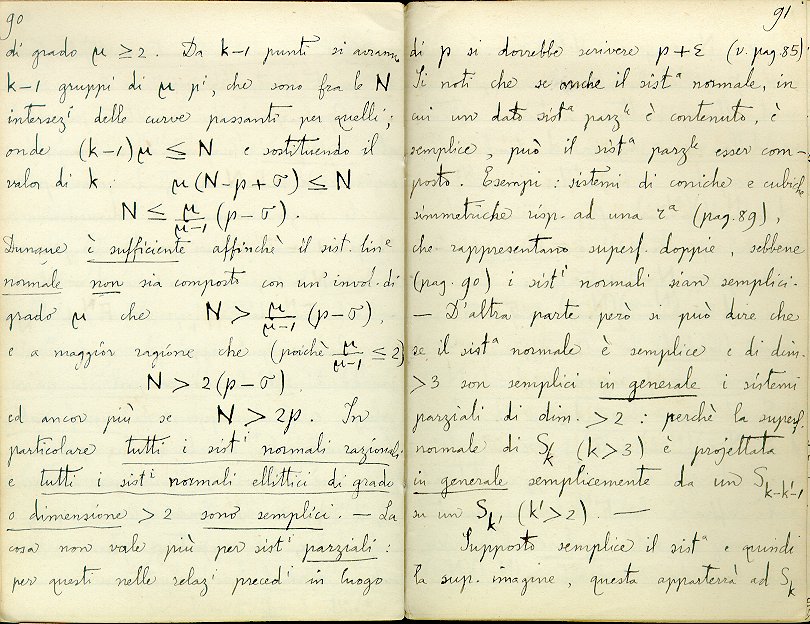 90
di grado μ ≥ 2. Da k-1 punti si avranno
k-1 gruppi di μ pⁱ, che sono fra le N
intersezⁱ delle curve passanti per quelli;
onde (k-1)μ ≤ N e sostituendo il
valor di k: μ(N-p+σ) ≤ N
N ≤ μ/(μ-1) (p-σ).
Dunque è sufficiente affinchè il sist. linᵉ
normale non sia composto con un'invol. di
grado μ che N > μ/(μ-1) (p-σ),
e a maggior ragione che (poichè μ/(μ-1) ≤ 2)
N > 2(p-σ),
ed ancor più se N > 2p. In
particolare tutti i sistⁱ normali razionali
e tutti i sistⁱ normali ellittici di grado
o dimensione > 2 sono semplici. — La
cosa non vale più per sistⁱ parziali:
per questi nelle relazⁱ precedⁱ in luogo
91
di p si dovrebbe scrivere p+ε (v. pag. 85)
Si noti che se anche il sistᵃ normale, in
cui un dato sistᵃ parzˡᵉ è contenuto, è
semplice, può il sistᵃ parzˡᵉ esser com-
posto. Esempi: sistemi di coniche e cubiche
simmetriche risp. ad una rᵃ (pag. 89),
che rappresentano superf. doppie, sebbene
(pag. 90) i sistⁱ normali sian semplici.
— D'altra parte però si può dire che
se il sistᵃ normale è semplice e di dim.
> 3 son semplici in generale i sistemi
parziali di dim. > 2: perchè la superf.
normale di Sₖ (k>3) è projettata
in generale semplicemente da un Sₖ₋ₖ'₋₁
su un Sₖ' (k'>2). —
Supposto semplice il sistᵃ e quindi
la sup. imagine, questa apparterrà ad Sₖ